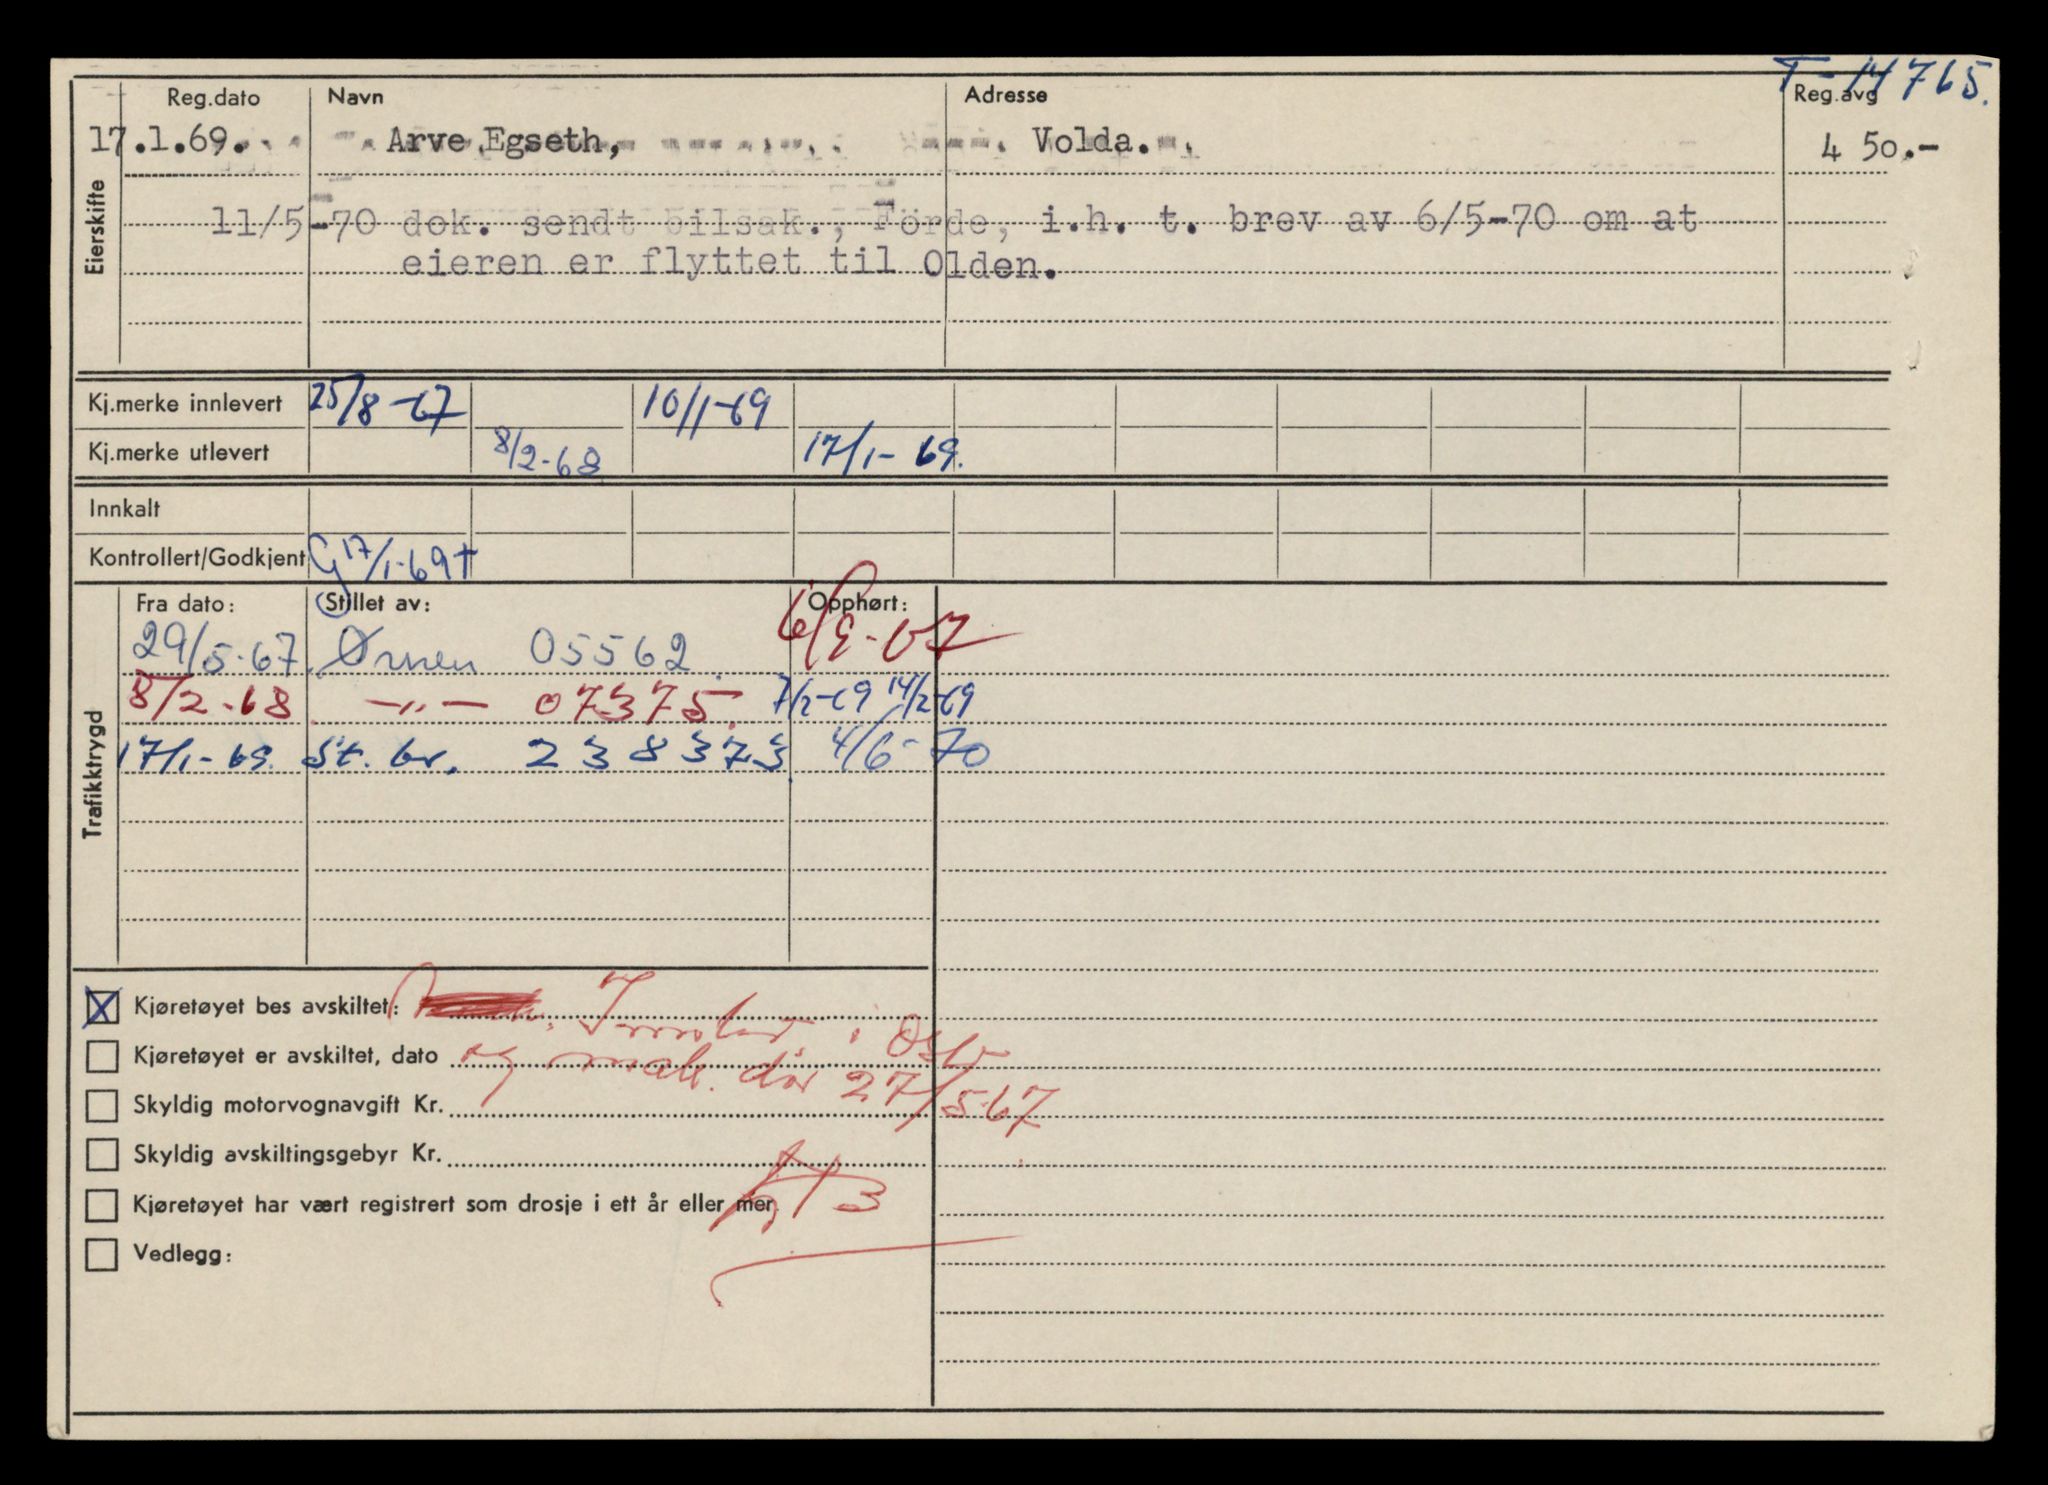 T-14765.
Reg.dato Navn Adresse Reg.avg
17.1.69. Arve Egseth, Volda. 4 50.-
Eierskifte
11/5-70 dok. sendt bilsak., Förde, i.h. t. brev av 6/5-70 om at
eieren er flyttet til Olden.
Kj.merke innlevert 25/8-67 10/1-69
Kj.merke utlevert 8/2-68 17/1-69.
Innkalt
Kontrollert/Godkjent G 17/1-69
Trafikktrygd
Fra dato: Stillet av: Opphørt:
29/5-67 Ørnen 05562 6/9-67
8/2-68 -"- 07375. 7/2-69 14/2-69
17/1-69. St. br. 238373 4/6-70
X Kjøretøyet bes avskiltet: i Oslo
Kjøretøyet er avskiltet, dato og 27/5-67
Skyldig motorvognavgift Kr.
Skyldig avskiltingsgebyr Kr.
Kjøretøyet har vært registrert som drosje i ett år eller mer.
Vedlegg: